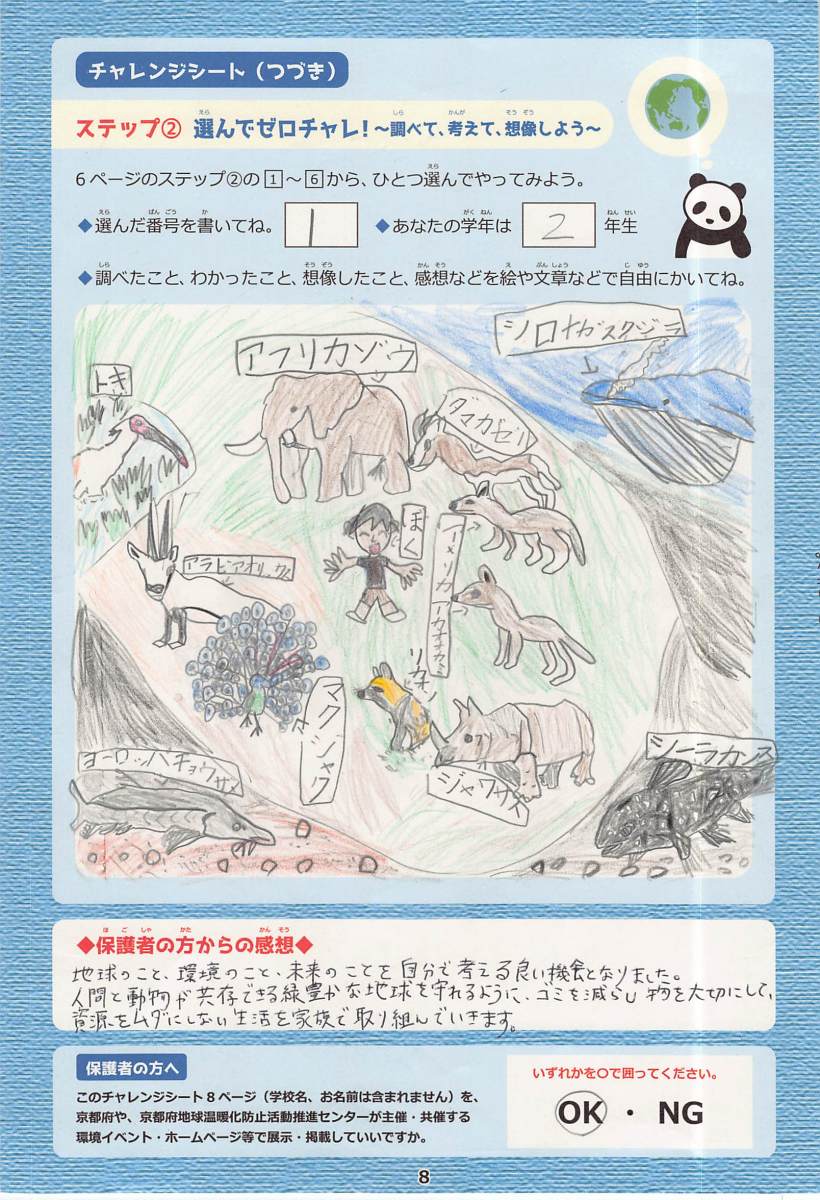 チャレンジシート（つづき）
ステップ② 選んでゼロチャレ！～調べて、考えて、想像しよう～
6ページのステップ②の1～6から、ひとつ選んでやってみよう。
◆選んだ番号を書いてね。 1 ◆あなたの学年は 2 年生
◆調べたこと、わかったこと、想像したこと、感想などを絵や文章などで自由にかいてね。
シロナガスクジラ
アフリカゾウ
トキ
ダマガゼル
ぼく
アメリカアカオオカミ
アラビアオリックス
リカオン
マクジャク
ジャワサイ
シーラカンス
ヨーロッパチョウザメ
◆保護者の方からの感想◆
地球のこと、環境のこと、未来のことを自分で考える良い機会となりました。
人間と動物が共存できる緑豊かな地球を守れるように、ゴミを減らし物を大切にして、
資源をムダにしない生活を家族で取り組んでいきます。
保護者の方へ
このチャレンジシート8ページ（学校名、お名前は含まれません）を、
京都府や、京都府地球温暖化防止活動推進センターが主催・共催する
環境イベント・ホームページ等で展示・掲載していいですか。
いずれかを○で囲ってください。
OK ・ NG
8